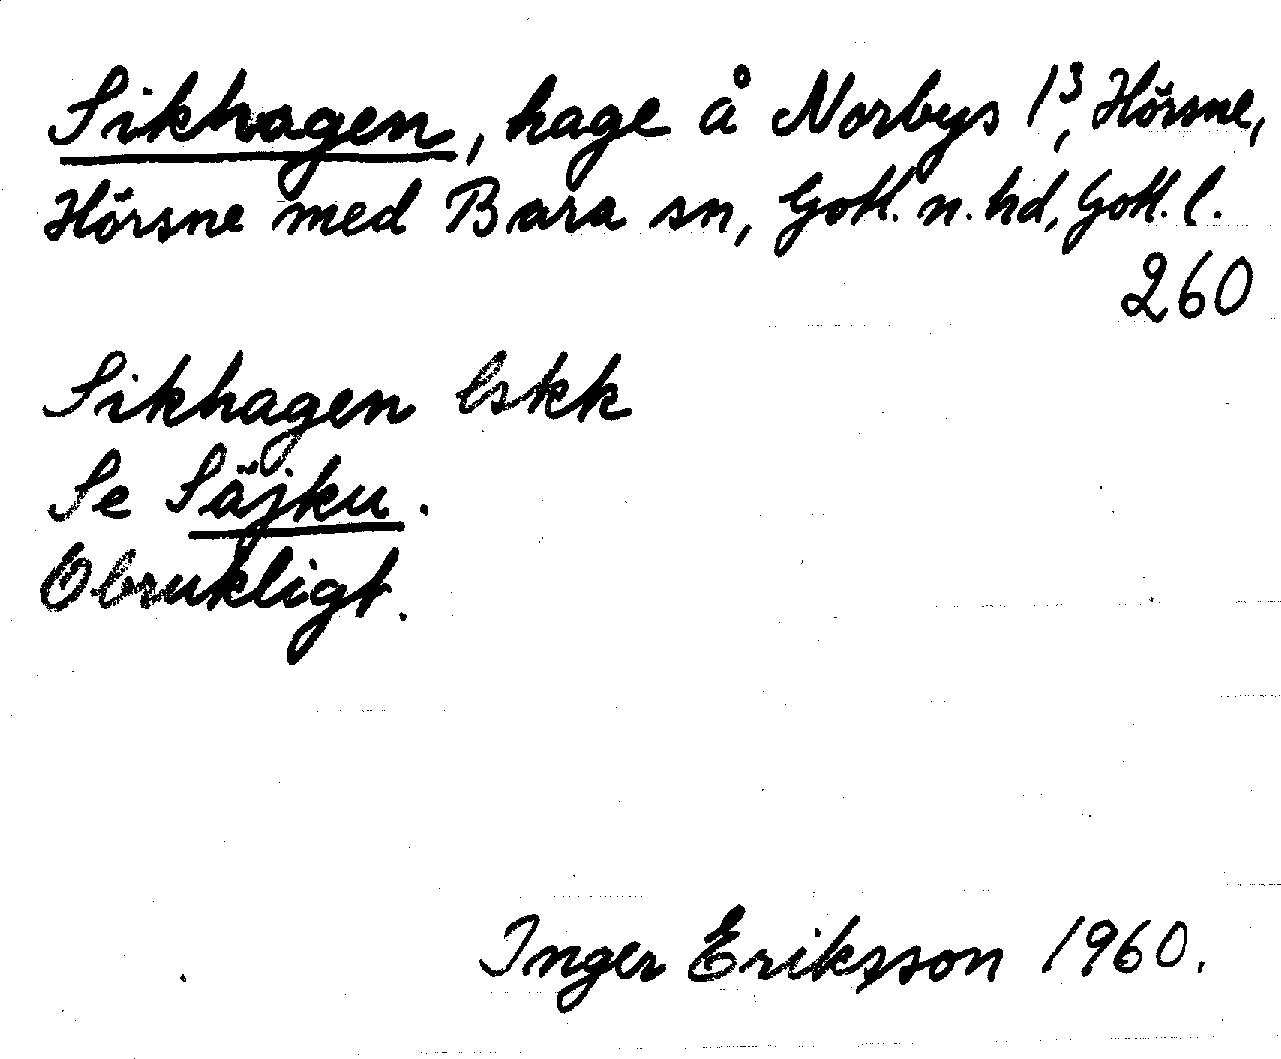 Sikhagen, hage å Norbys 1³, Hörsne,
Hörsne med Bara sn, Gotl. n. hd, Gotl. l.
260
Sikhagen lskk
Se Säjku.
Obrukligt.
Inger Eriksson 1960.